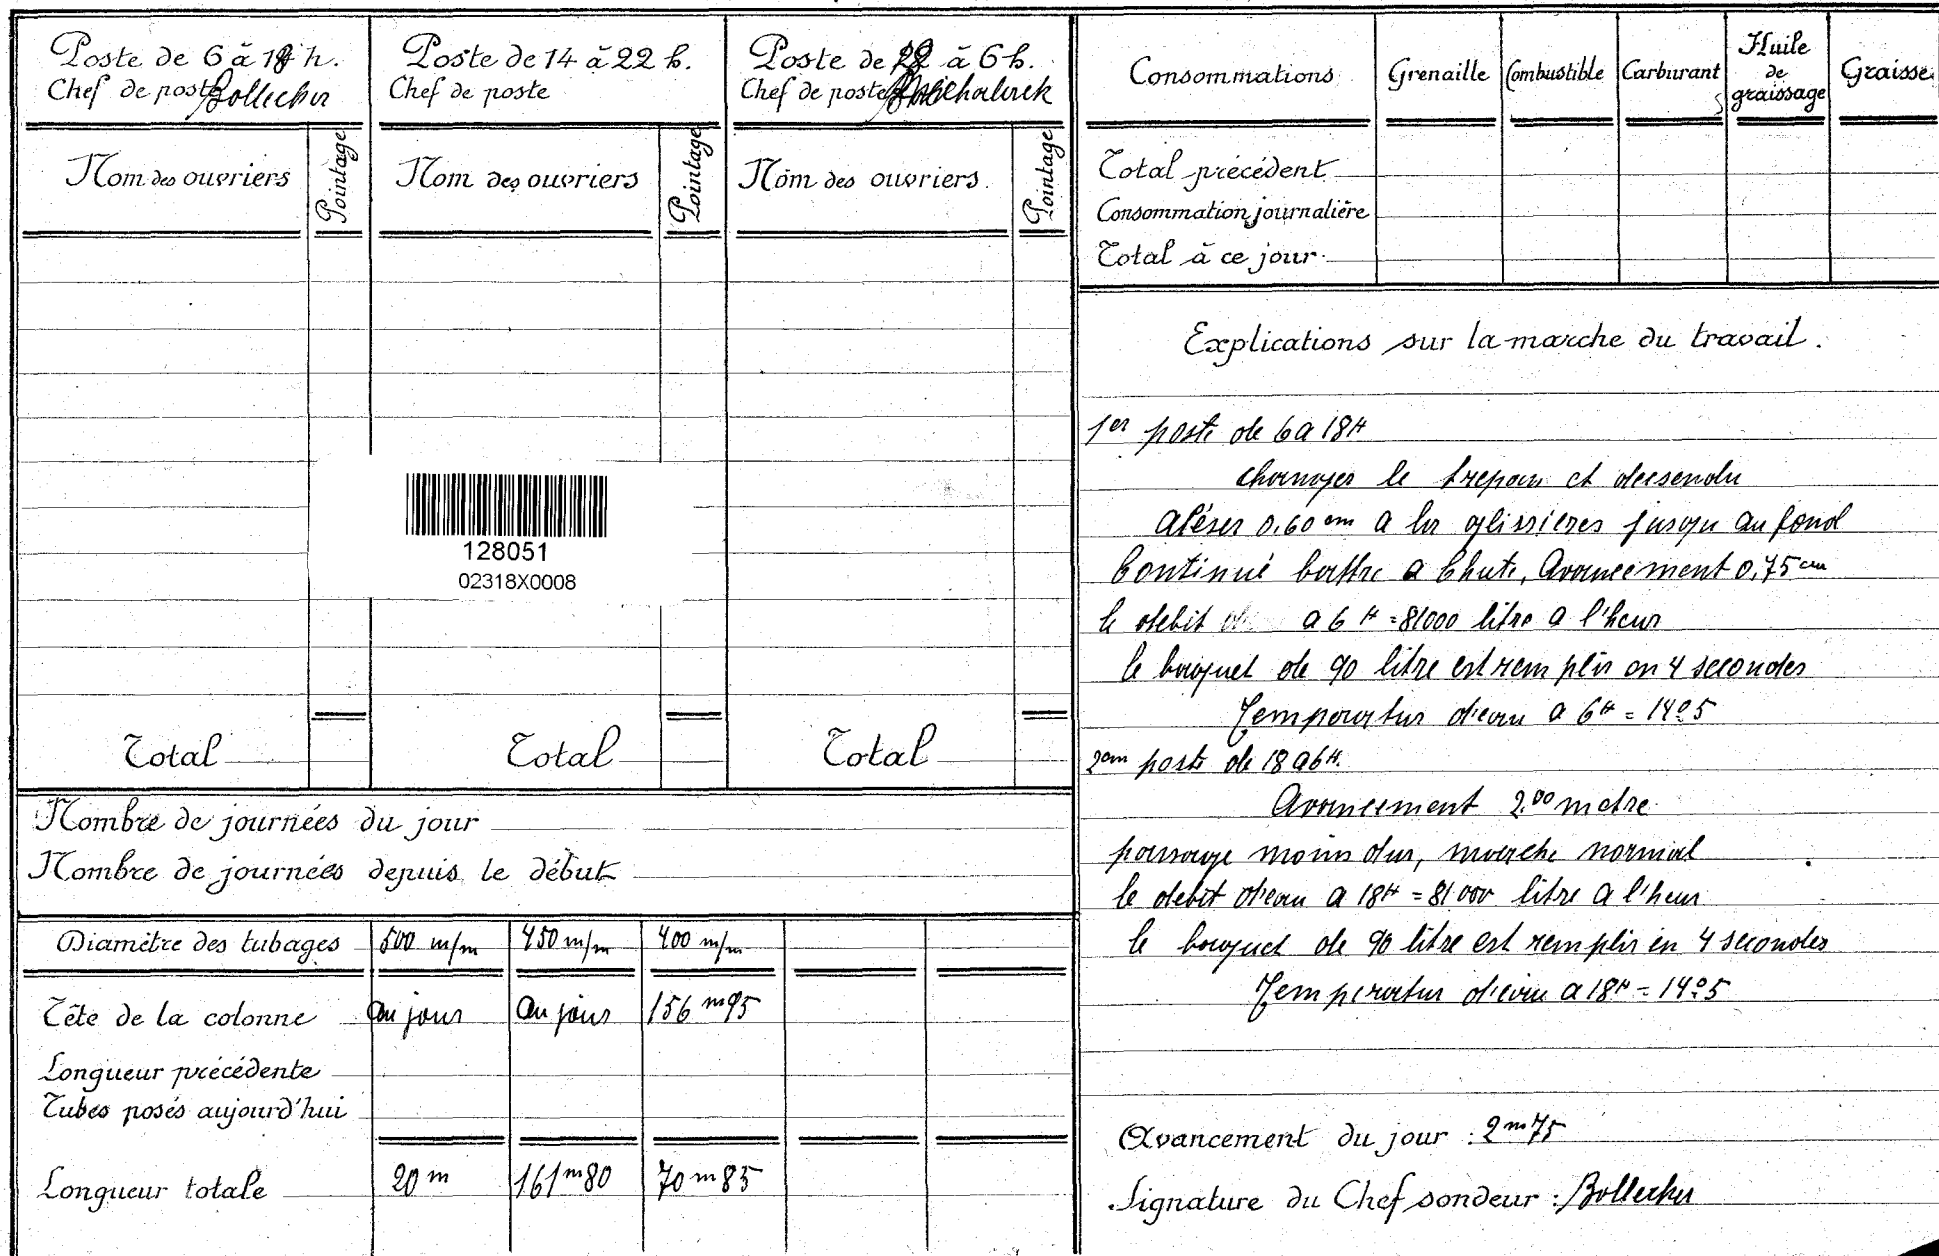 Poste de 6 à 18 h.
Chef de poste Bollecker
Poste de 14 à 22 h.
Chef de poste
Poste de 18 à 6 h.
Chef de poste
Nom des ouvriers
Pointage
Nom des ouvriers
Pointage
Nom des ouvriers
Pointage
128051
02318X0008
Total
Total
Total
Nombre de journées du jour
Nombre de journées depuis le début
Diamètre des tubages 500 m/m 450 m/m 400 m/m
Tête de la colonne au jour au jour 156 m 95
Longueur précédente
Tubes posés aujourd'hui
Longueur totale 20 m 161 m 80 70 m 85
Consommations Grenaille Combustible Carburant Huile de graissage Graisse
Total précédent
Consommation journalière
Total à ce jour
Explications sur la marche du travail.
1er poste de 6 a 18 H
changer le trepan et desendu
aléser 0,60 cm a la glissieres jusqu au fond
Continué battre a Chute, Avancement 0,75 cm
le debit a 6 H = 81000 litre a l'heur
le baquet de 90 litre est remplir en 4 secondes
Temperatur d'eau a 6 H = 14°5
2em poste de 18 a 6 H.
Avancement 2,00 metre
passage moins dur, marche normal
le debit d'eau a 18 H = 81000 litre a l'heur
le baquet de 90 litre est remplir en 4 secondes
Temperatur d'eau a 18 H = 14°5
Avancement du jour : 2 m 75
Signature du Chef sondeur : Bollecker